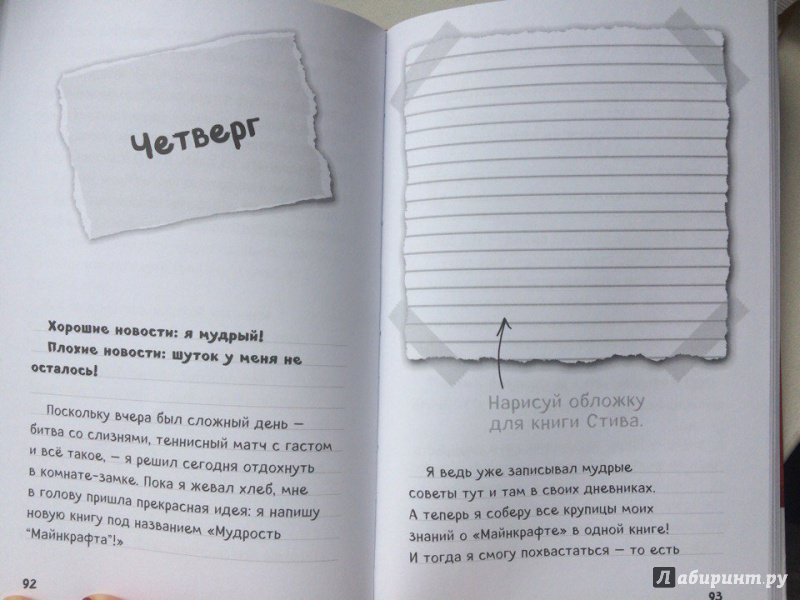 Четверг
Хорошие новости: я мудрый!
Плохие новости: шуток у меня не
осталось!
Поскольку вчера был сложный день –
битва со слизнями, теннисный матч с гастом
и всё такое, – я решил сегодня отдохнуть
в комнате-замке. Пока я жевал хлеб, мне
в голову пришла прекрасная идея: я напишу
новую книгу под названием «Мудрость
"Майнкрафта"!»
92
Нарисуй обложку
для книги Стива.
Я ведь уже записывал мудрые
советы тут и там в своих дневниках.
А теперь я соберу все крупицы моих
знаний о «Майнкрафте» в одной книге!
И тогда я смогу похвастаться – то есть
93
Лабиринт.ру